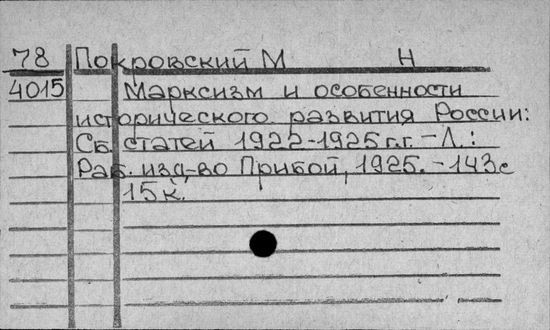 78 Покровский М Н
4015 Марксизм и особенности
исторического развития России:
Сб. статей 1922-1925г.г. -Л.:
Раб. изд-во Прибой, 1925. -143с
15к.